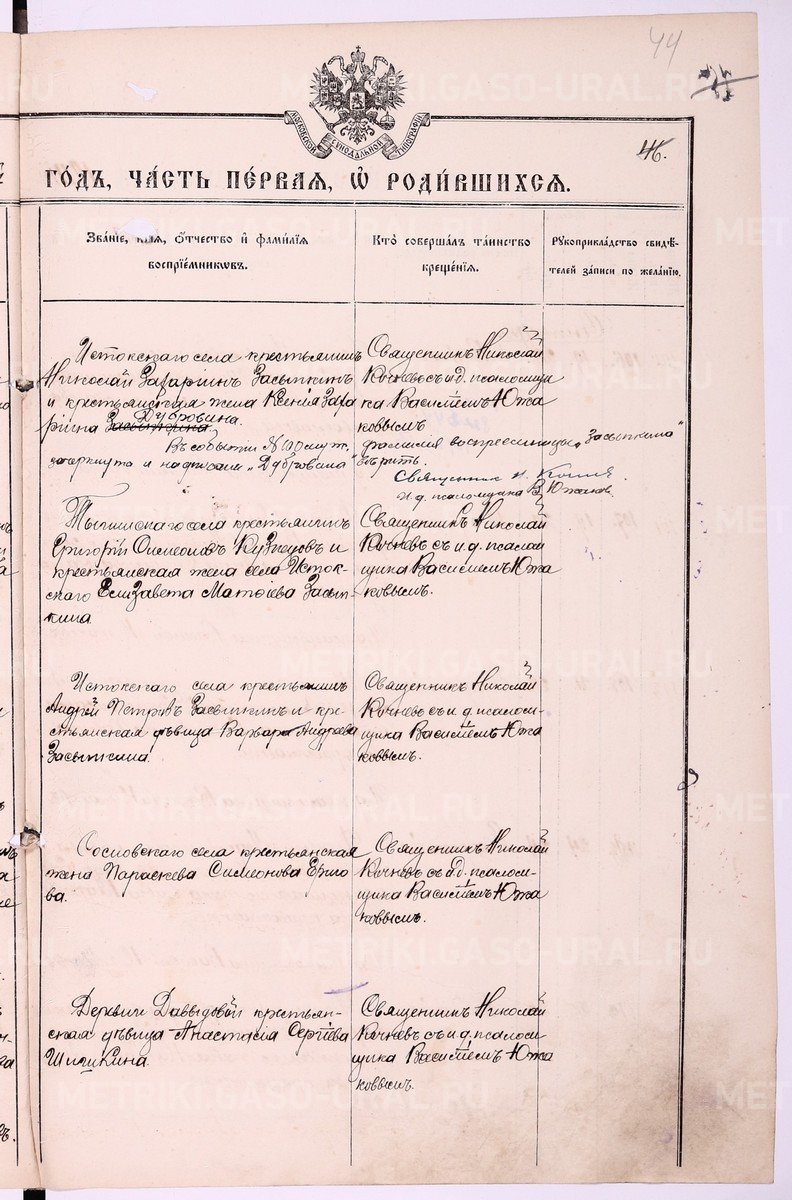 44
46.
МОСКОВСКОЙ СѴНОДАЛЬНОЙ ТИПОГРАФІИ
ГО́ДЪ, ЧА́СТЬ ПЕ́РВАЯ, Ѡ҆ РОДИ́ВШИХСЯ.
Зва́нїе, и҆́мя, Ѻ҆́тчество и҆ фами́лїя
воспрїе́мникѡвъ.
Кто̀ соверша́лъ та́инство
креще́нїя.
Рꙋкоприкла́дство свидѣ́-
телей за́писи по жела́нїю.
Истокскаго села крестьянинъ
Николай Захаріинъ Засыпкинъ
и крестьянская жена Ксенія Заха
ріина Засыпкина Дубровина.
Въ событіи № 40 муж.
зачеркнута и надписан „Дубровина"
Священникъ Николай
Кочневъ съ и.д. псаломщи
ка Василіемъ Южа
ковымъ
фамилія воспреемницы „Засыпкина"
вѣрить.
Священник Н. Кочнев.
И. д. псаломщика В. Южаков.
Тыгишскаго села крестьянинъ
Григорій Симеоновъ Кузнецовъ и
крестьянская жена села Исток-
скаго Елизавета Матѳіева Засып-
кина
Священникъ Николай
Кочневъ съ и.д. псалом
щика Василіемъ Южа
ковымъ.
Истокскаго села крестьянинъ
Андрей Петровъ Засыпкинъ и кре-
стьянская дѣвица Варвара Андреева
Засыпкина.
Священникъ Николай
Кочневъ съ и.д. псалом-
щика Василіемъ Южа
ковымъ.
Сосновскаго села крестьянская
жена Параскева Симеонова Ергио
ва.
Священникъ Николай
Кочневъ съ и.д. псалом-
щика Василіемъ Южа
ковымъ.
Деревни Давыдовой крестьян-
ская дѣвица Анастасія Сергіева
Шишкина.
Священникъ Николай
Кочневъ съ и.д. псалом-
щика Василіемъ Южа
ковымъ.
METRIKI.GASO-URAL.RU